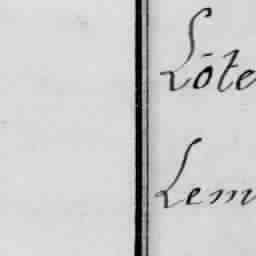 Lôte
Lem